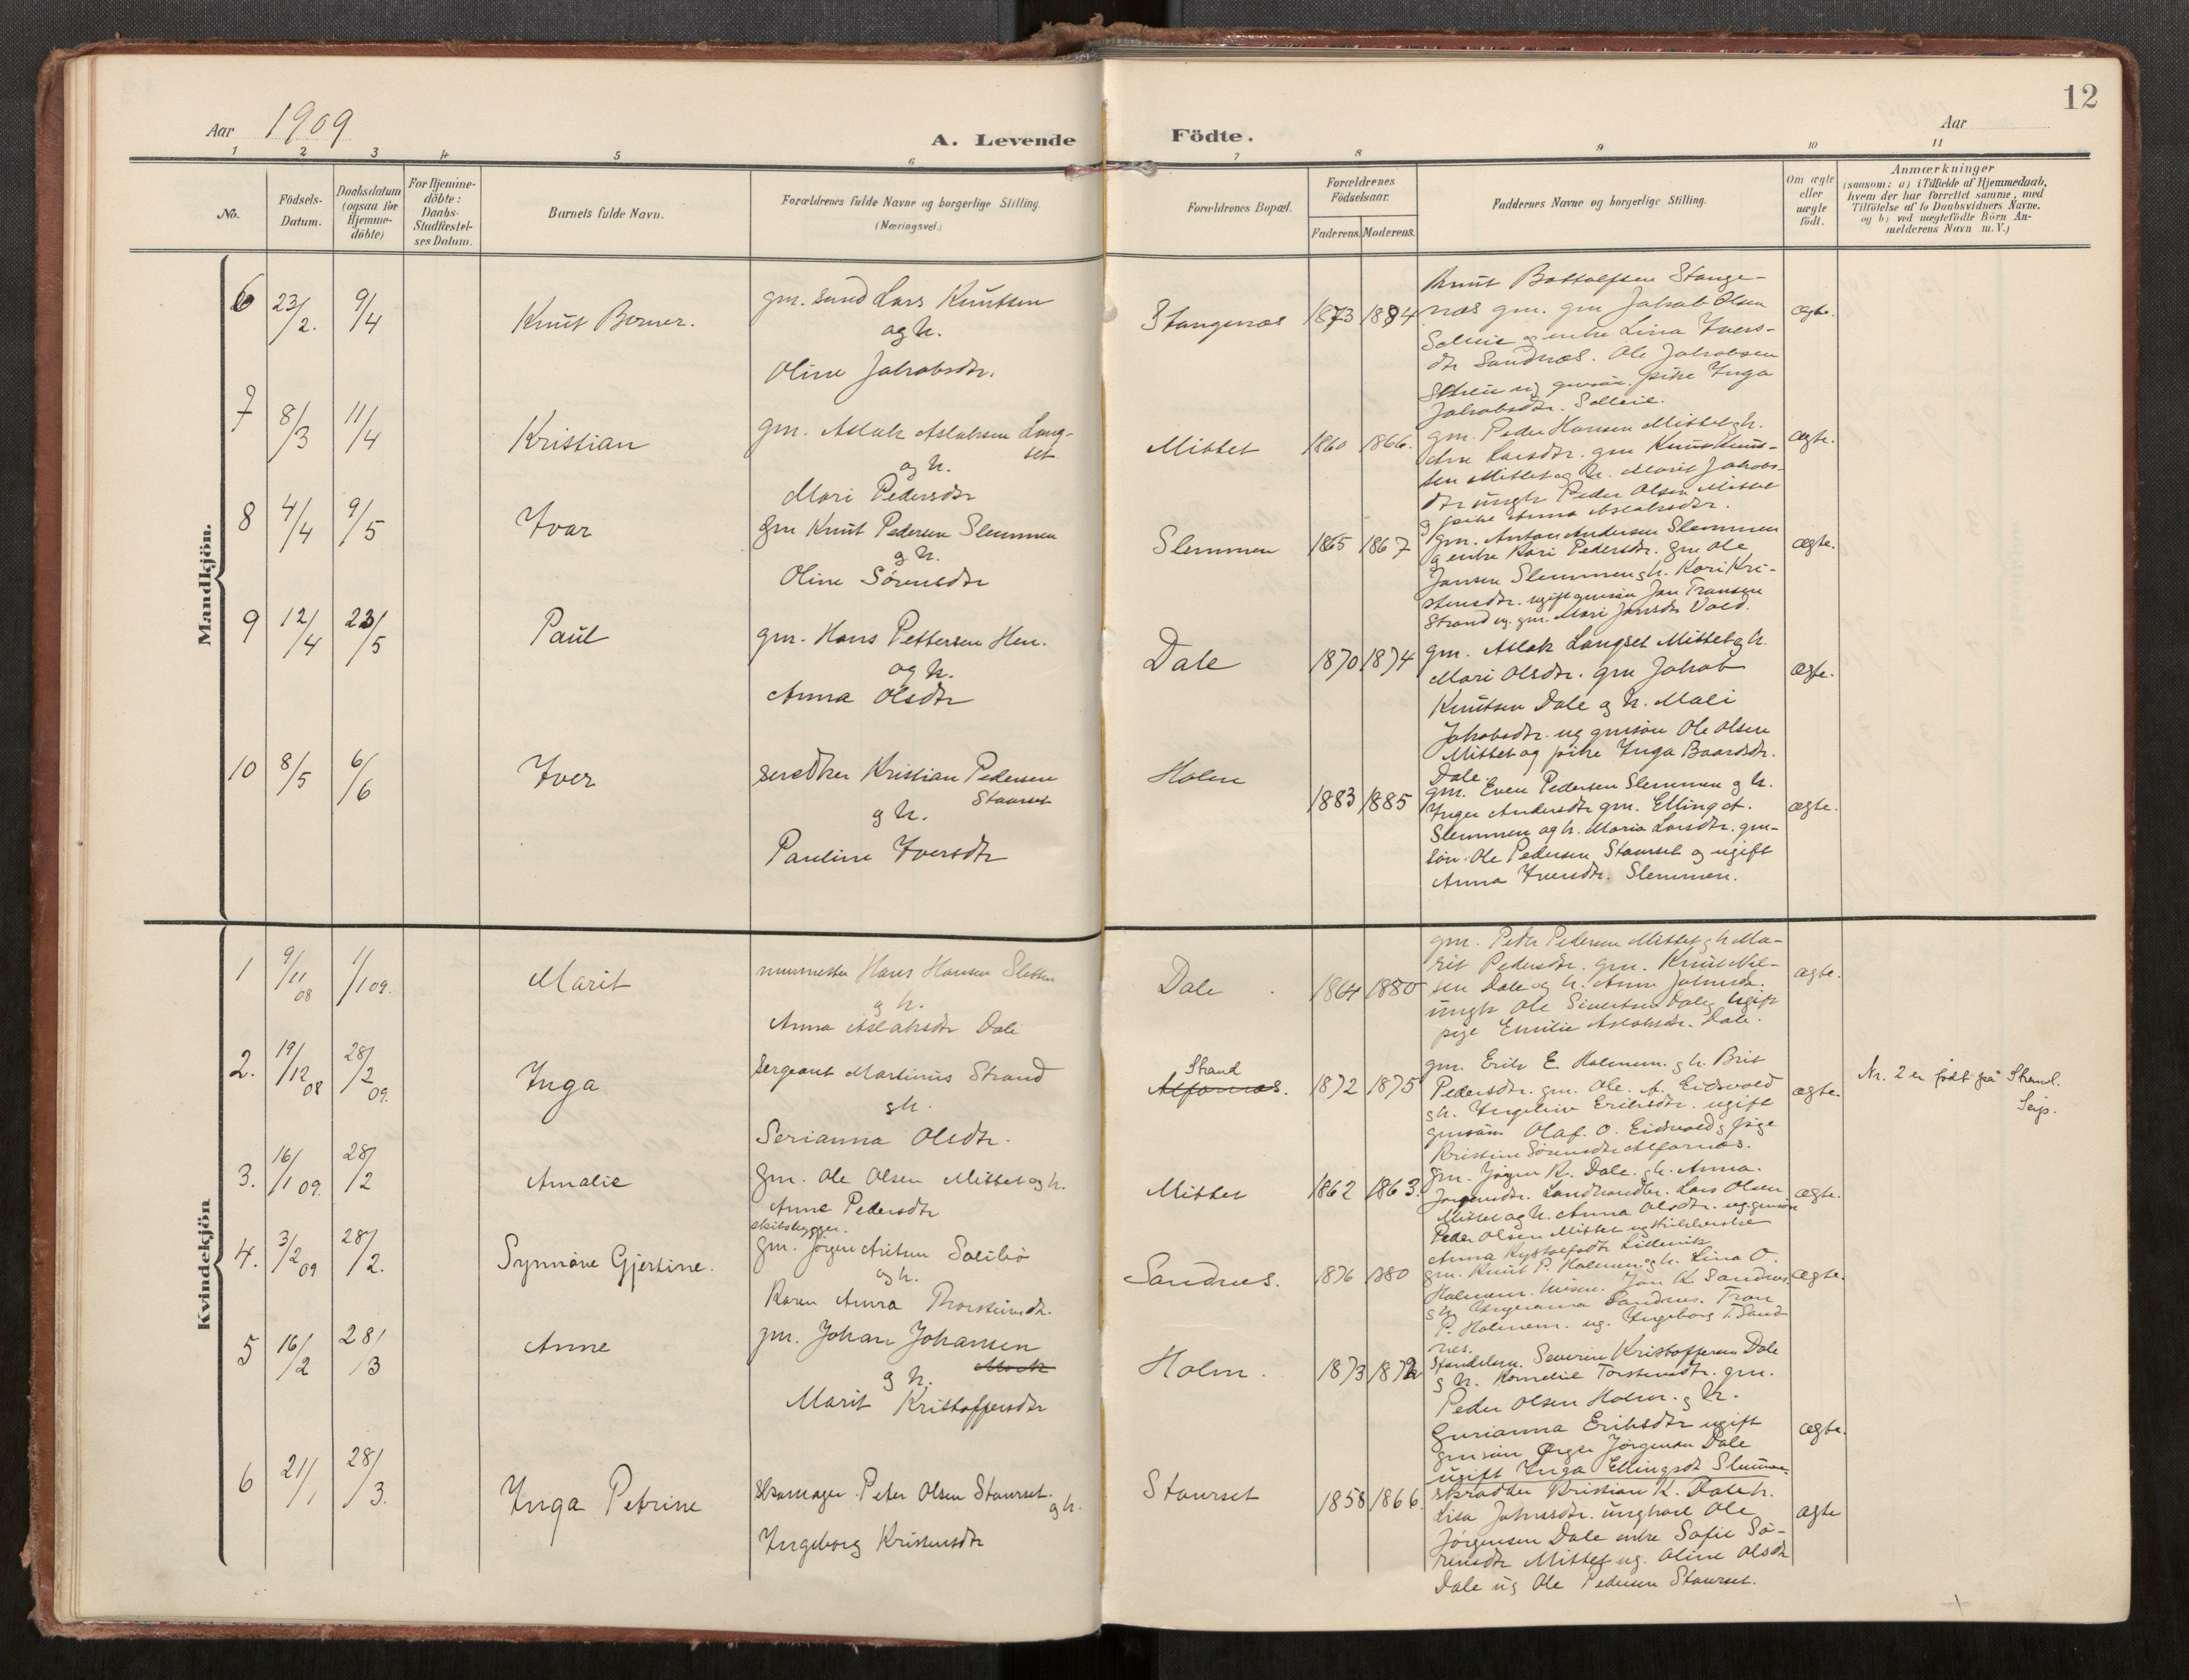 12
Aar 1909
A. Levende Födte.
Aar
1 2 3 4 5 6 7 8 9 10 11
No.
Födsels-
Datum.
Daabsdatum
(ogsaa for
Hjemme-
döbte)
For Hjemme-
döbte:
Daabs-
Stadfæstel-
ses Datum.
Barnets fulde Navn.
Forældrenes fulde Navne og borgerlige Stilling.
(Næringsvei.)
Forældrenes Bopæl.
Forældrenes
Födselsaar.
Faderens. Moderens.
Faddernes Navne og borgerlige Stilling.
Om ægte
eller
uægte
födt.
Anmærkninger
(saasom: a) i Tilfælde af Hjemmedaab,
hvem der har forrettet samme, med
Tilföielse af to Daabsvidners Navne,
og b) ved uægtefödte Börn An-
melderens Navn m. V.)
Mandkjön.
6 23/2. 9/4 Knut Berner.
gm. Lars Knutsen
og h.
Oline Jakobsdtr.
Stangenæs 1873 1884
Knut Bottolfsen Stange-
næs gm. gm Jakob Olsen
og enke Lina Ivers-
dtr Sandnæs. Ole Jakobsen
pike Inga
Jakobsdtr.
ægte.
7 8/3 11/4 Kristian
gm. Aslak Aslaksen Lang-
set
og h.
Mari Pedersdtr
Mittet 1860 1866.
gm. Peder Hansen Mittet h.
Ane Larsdtr. gm Knut Knut-
sen Mittet og h. Marit Jakobs-
dtr ungk Peder Olsen Mittet
g pike Anna Aslaksdtr.
ægte.
8 4/4 9/5 Ivar
gm Knut Pedersen Slemmen
g h.
Oline Sörensdtr
Slemmen 1865 1867
gm. Anton Andersen Slemmen
g enke Kari Pedersdtr. gm Ole
Jansen Slemmen g h. Kari Kri-
stensdtr. ugift gmsön Jan Transen
Strand ug. gm. Mari Jansdtr Vold.
ægte.
9 12/4 23/5 Paul
gm. Hans Pettersen Hen.
og h.
Anna Olsdtr
Dale 1870 1874
gm. Aslak Langset Mittet g h.
Mari Olsdtr. gm Jakob
Knutsen Dale g h. Mali
Jakobsdtr. ug gmsön Ole Olsen
Mittet og pike Inga Baardsdtr.
Dale.
ægte.
10 8/5 6/6 Iver
Kristian Pedersen
Staurset
g h.
Pauline Iversdtr
Holm 1883 1885
gm. Even Pedersen Slemmen g h.
Inger Andersdtr gm. Elling A.
Slemmen og h. Maria Larsdtr. gm-
sön. Ole Pedersen Staurset og ugift
Anna Iversdtr. Slemmen.
ægte.
Kvindekjön
1 9/11 08 1/1 09. Marit
murmester Hans Hansen Sletten
g h.
Anna Aslaksdtr Dale
Dale 1864 1880
gm. Peder Pedersen Mittet g h Ma-
rit Pedersdtr. gm. Knut Nil-
sen Dale og h. Anne Johnsdtr.
ungk Ole Sivertsen Dale g ugift
pige Emilie Aslaksdtr. Dale.
ægte.
2. 19/12 08 28/2 09. Inga
Sergeant Martinus Strand
g h.
Serianna Olsdtr.
Strand
Alfarnæs. 1872 1875
gm. Erik E. Holmem. g h. Brit
Pedersdtr. gm. Ole. A. Eidsvold
g h. Ingeline Eriksdtr. ugift
gmsön Olaf. O. Eidsvold g pige
Kristine Sörensdtr Alfarnæs.
ægte.
Nr. 2 er födt på Strand.
Seip.
3. 16/1 09. 28/2 Amalie
gm. Ole Olsen Mittet og h.
Anne Pedersdtr
Mittet 1862 1863.
gm. Jörgen K. Dale. g h. Anna.
Jörgensdtr. Landhandler. Lars Olsen
Mittet og h. Anna Olsdtr. ug. gmsön
Peder Olsen Mittet
Anna
ægte.
4. 3/2 09 28/2. Synnöve Gjertine.
skibsbygger.
gm. Jörgen
og h.
Karen Anna Thorsteinsdtr.
Sandnes. 1876 1880
gm. Knut P. Holmem. og h. Lina O.
Holmem. Jan K. Sandnes
g h. Sandnes. Tron
P. Holmem. ug. Ingeborg T. Sand-
nes.
ægte.
5 16/2 28/3 Anne
gm. Johan Johansen
g h.
Marit Kristoffersdtr
Holm. 1873 1872
Severin Kristoffersen Dale
g h. Kornelie Torsteinsdtr. gm.
Peder Olsen Holm. g h.
Gurianna Eriksdtr ugift
gmsön Jörgensen Dale
ugift Inga Ellingsdt Slemmen.
ægte.
6 21/1 28/3. Inga Petrine
Skomager. Peter Olsen Staurset.
g h.
Ingeborg Kristensdtr
Staurset 1858 1866.
skrædder Kristian K. Dale h.
Lisa Johnsdtr. ungkarl Ole
Jörgensen Dale enke Sofie Sö-
rensdtr Mittet ug. Oline Olsdtr
Dale ug Ole Pedersen Staurset.
ægte